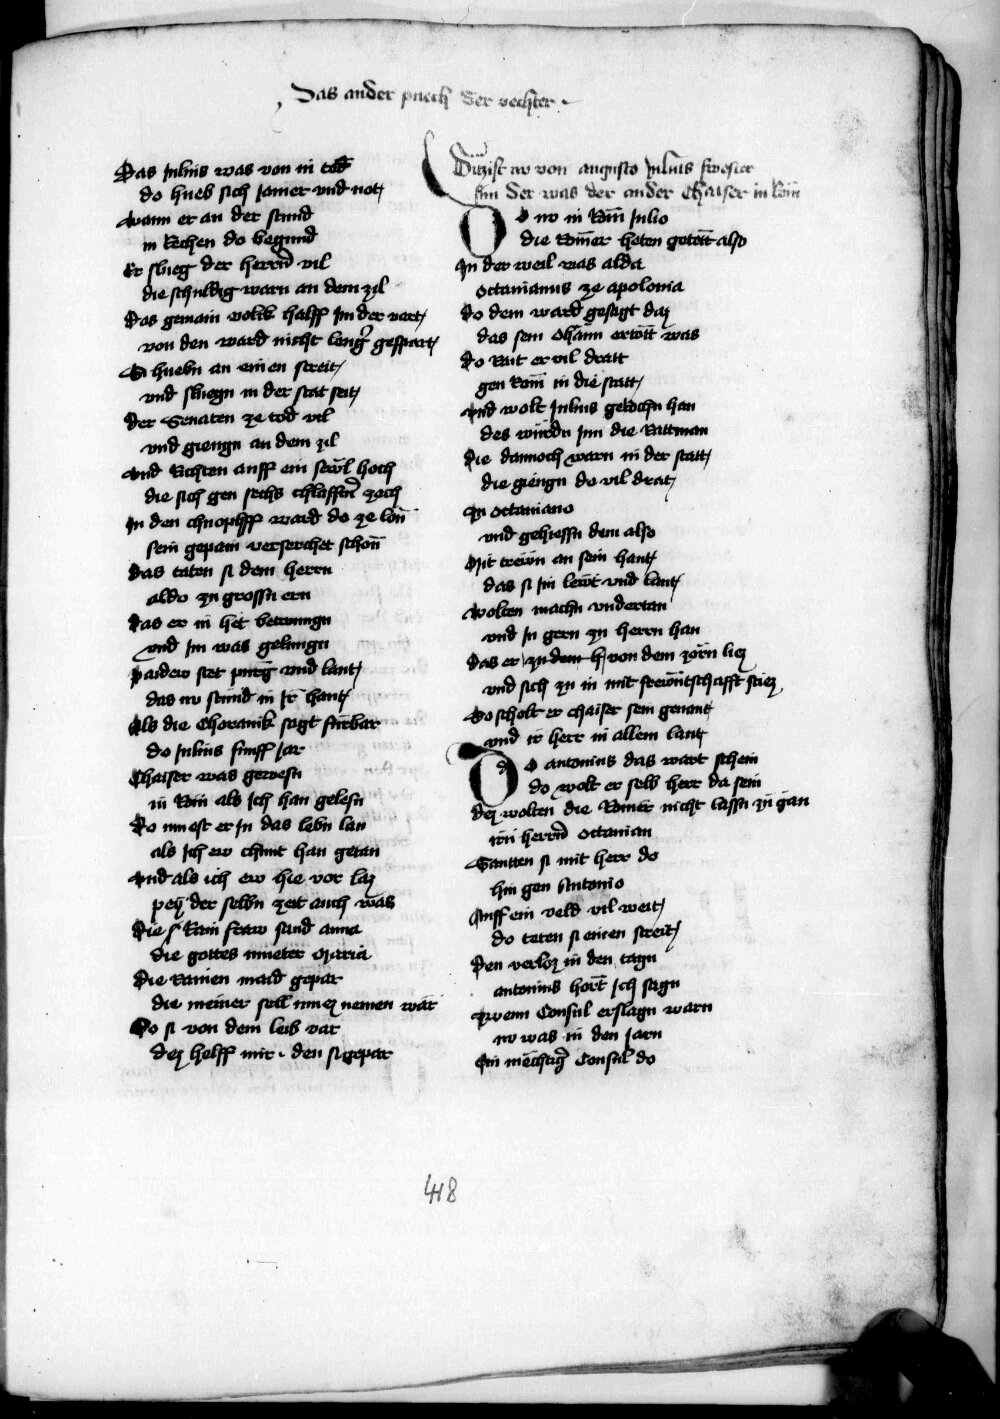 Das ander puech Der rechter
Das Julius was von in tod
do hueb sich Jamer vnd not
wann er an der stund
in Rechen do begund
Er slueg der herrn vil
die schuldig warn an dem zil
Das gemain volkh halff Im der vart
von den ward nicht leng gespart
Si huebn an einen streit
vnd sluegn in der stat seit
Der Senaten ze tod vil
vnd giengn an dem zil
vnd Richten auff ein sewl hoch
die sich gen sechs chlafftn zoch
In den chnopff ward do ze lon
sein gepain verserchet schon
Das taten si dem herrn
aldo zu grossn ern
Das er in het betwungn
vnd Im was gelungn
paidew stet purg vnd lant
das nw stund in Ir hant
Als die Choranik sagt furbar
do Julius funff Jar
Chaiser was gewesn
in Rom als Ich han gelesn
Do muest er In das lebn lan
als Ich ew chunt han getan
Vnd als ich ew hie vor laz
pey der selbn zeit auch was
Die Rain fraw sand anna
die gottes mueter Maria
Die Rainen maid gepar
die meiner sell muez nemen war
So si von dem leib var
dez helff mir den si gepar
Ditz ist nw von augusto Julius swester
sun Der was der ander Chaiser in Rom
Do nw in Rom Julio
die Romer heten getott also
In der weil was alda
octauianus ze apolonia
Do dem ward gesagt daz
das sein Ohaim ertott was
Do Rait er vil dratt
gen Rom in die statt
Vnd wolt Julius gerochn han
des wurdn Inn die Rattman
Die dannoch warn in der statt
die giengn do vil drat
Zu octauiano
vnd gehiessn dem also
Mit trewn an sein hant
das si Im lewt vnd lant
Wolten machn vndertan
vnd In gern zu herrn han
Das er zu dem h von dem zorn liez
vnd sich zu in mit frewntschafft stiez
So scholt er chaiser sein genant
vnd ir herr in allem lant
Do antonius das wart schein
do wolt er selb herr da sein
Dez wolten die Romer nicht lassn zu gan
irn herrn octauian
Santten si mit herr do
hin gen Antonio
Auff ein veld vil weit
do teten si einen streit
Den verloz in den tagn
antonius hort Ich sagn
Zwenn Consul erslagn warn
nw was in den Jarn
Ein mechtig Consul do
418